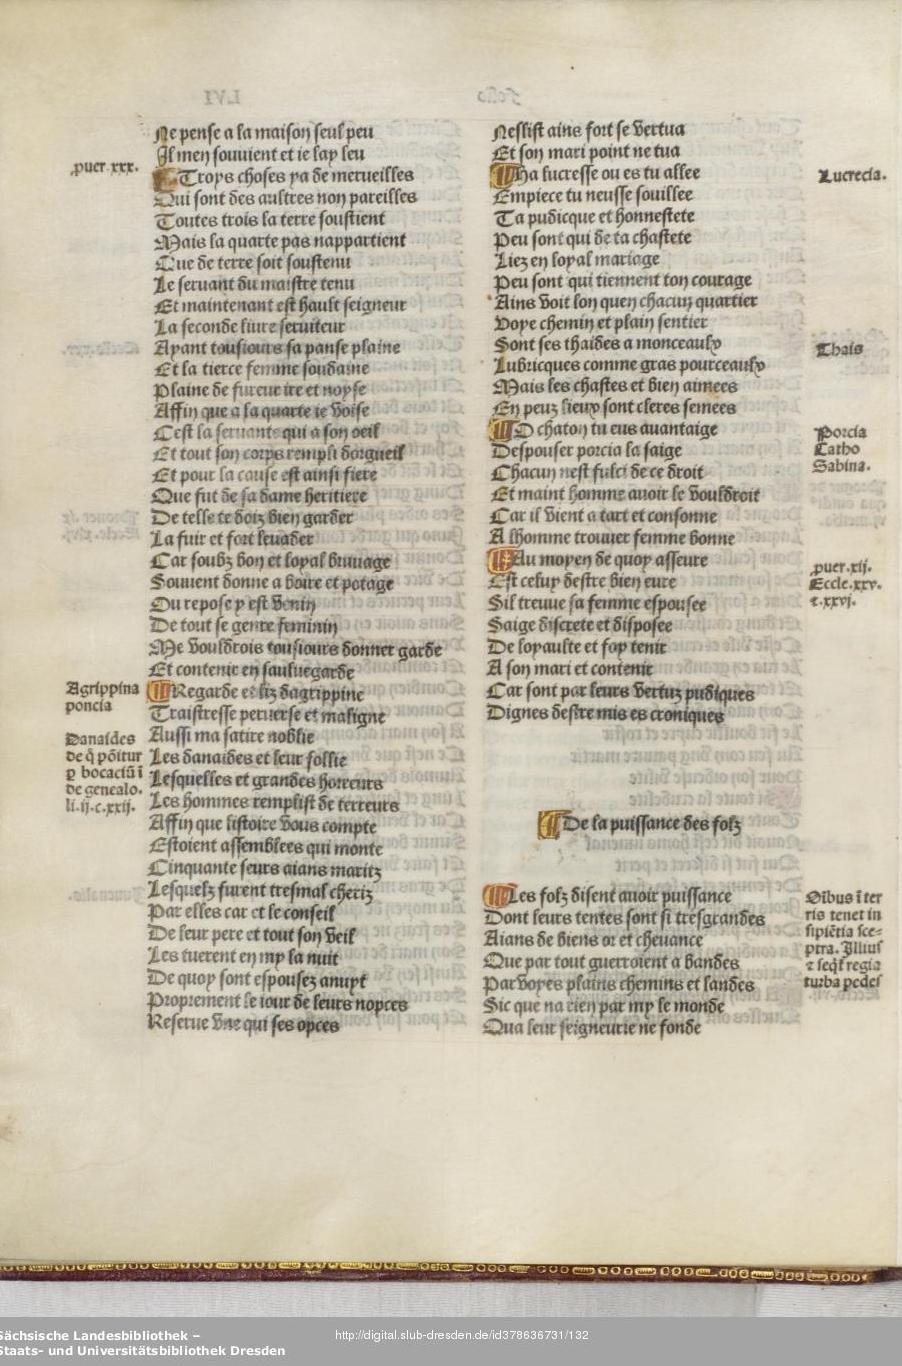 Ne pense a la maison seul peu
Il men souvient et ie lay leu
puer.xxx.
Troys choses ya de merueilles
Qui sont des aultres non pareilles
Toutes trois la terre soustient
Mais la quarte pas nappartient
Que de terre soit soustenu
Le seruant du maistre tenu
Et maintenant est hault seigneur
La seconde liure seruiteur
Ayant tousiours sa panse plaine
Et la tierce femme soudaine
Plaine de fureur ire et noyse
Affin que a la quarte ie voise
Cest la seruante qui a son oeil
Et tout son corps rempli dorgueil
Et pour la cause est ainsi fiere
Que fut de sa dame heritiere
De telle te doiz bien garder
La fuir et fort leuader
Car soubz bon et loyal bruuage
Souuent donne a boire et potage
Ou repose y est venin
De tout se genre feminin
Me vouldrois tousiours donner garde
Et contenir en sauluegarde
Agrippina
poncia
Regarde et liz dagrippine
Traistresse peruerse et maligne
Danaides
de q̄ pōitur
ꝑ bocaciū ī
de genealo.
li.ij.c.xxij.
Aussi ma satire noblie
Les danaides et leur follie
Lesquelles et grandes horreurs
Les hommes remplist de terreurs
Affin que listoire vous compte
Estoient assemblees qui monte
Cinquante seurs aians maritz
Lesquelz furent tresmal cheriz
Par elles car et le conseil
De leur pere et tout son veil
Les tuerent en my la nuit
De quoy sont espousez anuyt
Proprement le iour de leurs nopces
Reserue vne qui ses opces
Nessist ains fort se vertua
Et son mari point ne tua
Ha lucresse ou es tu allee
Lucrecia.
Empiece tu neusse souillee
Ta pudicque et honnestete
Peu sont qui de ta chastete
Liez en loyal mariage
Peu sont qui tiennent ton courage
Ains voit lon quen chacun quartier
Voye chemin et plain sentier
Sont ses thaides a monceaulx
Thais
Lubricques comme gras pourceaulx
Mais les chastes et bien aimees
En peuz lieux sont cleres semees
O chaton tu eus auantaige
Porcia
Catho
Sabina.
Despouser porcia la saige
Chacun nest fulci de ce droit
Et maint homme auoir le vouldroit
Car il vient a tart et consonne
A lhomme trouuer femme bonne
Au moyen de quoy asseure
puer.xij.
Eccle.xxv.
⁊.xxvj.
Est celuy destre bien eure
Sil treuue sa femme espousee
Saige discrete et disposee
De loyaulte et foy tenir
A son mari et contenir
Car sont par leurs vertuz pudiques
Dignes destre mis es croniques
De la puissance des folz
Les folz disent auoir puissance
Oībus ī ter
ris tenet in
sipiētia sce=
ptra. Illius
⁊ seqt̄ regia
turba pedes
Dont leurs tentes sont si tresgrandes
Aians de biens or et cheuance
Que par tout guerroient a bandes
Par voyes plains chemins et landes
Sic que na rien par my le monde
Qua leur seigneurie ne fonde
Sächsische Landesbibliothek –
Staats- und Universitätsbibliothek Dresden
http://digital.slub-dresden.de/id378636731/132